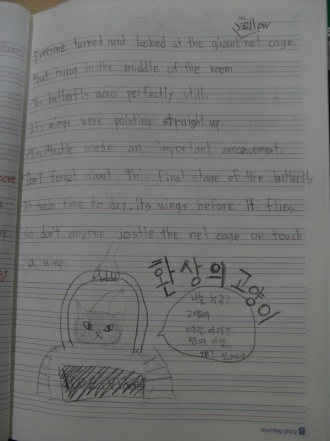 NO
yellow
Everyone turned and looked at the giant net cage.
that hung in the middle of the room.
The butterfly was perfectly still.
Its wings were pointing straight up
Miss Mackle made an important announcement.
Don't forget about This final stage of the butterfly
It needs time to dry, its wings before it flies.
so don't anyone jostle the net cage or touch
a wing.
환상의 고양이
나는 누구?
고양이...
여긴 어디?
엄마
morning glory